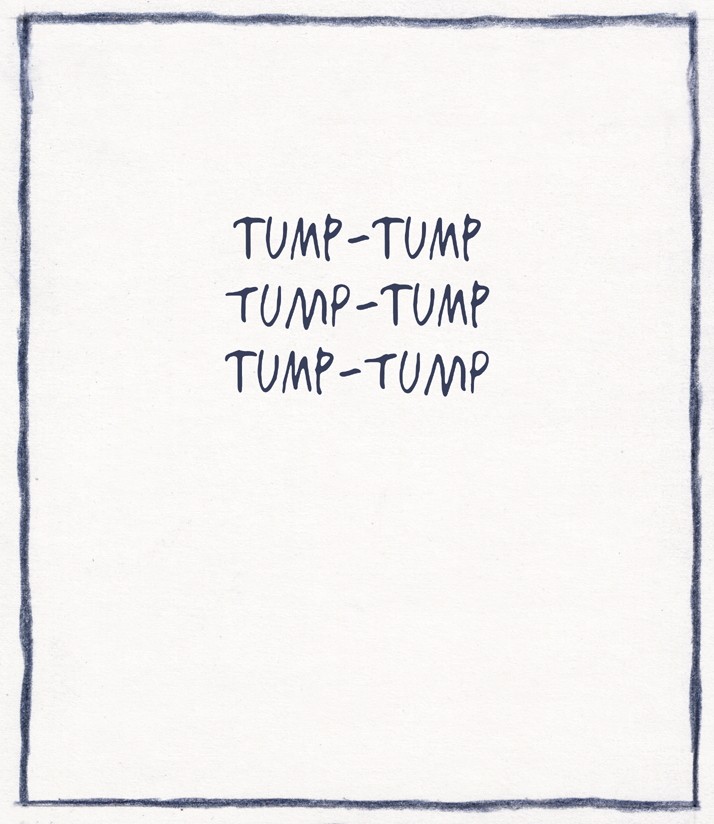 TUMP-TUMP
TUMP-TUMP
TUMP-TUMP